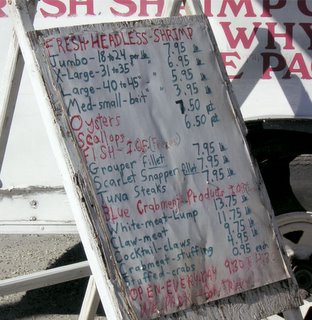 FRESH SHRIMP
WHY
E PA
FRESH-HEADLESS-SHRIMP
Jumbo-18to24 per lb 7.95 lb
X-Large-31to35 6.95
Large-40to45 5.95
Med-small-bait 3.95
Oysters 7.50 pt
Scallops 6.50 pt
FISH-IQF (Frozen)
Grouper fillet 7.95 lb
Scarlet Snapper fillet 7.95 lb
Tuna Steaks 7.95 lb
BLUE Crabmeat-Products
White-meat-Lump 13.75
Claw-meat 11.75
Cocktail-claws 9.75
Crabmeat-stuffing 4.95 lb
Stuffed-crabs 0.95 each
OPEN-EVERYDAY 9:30